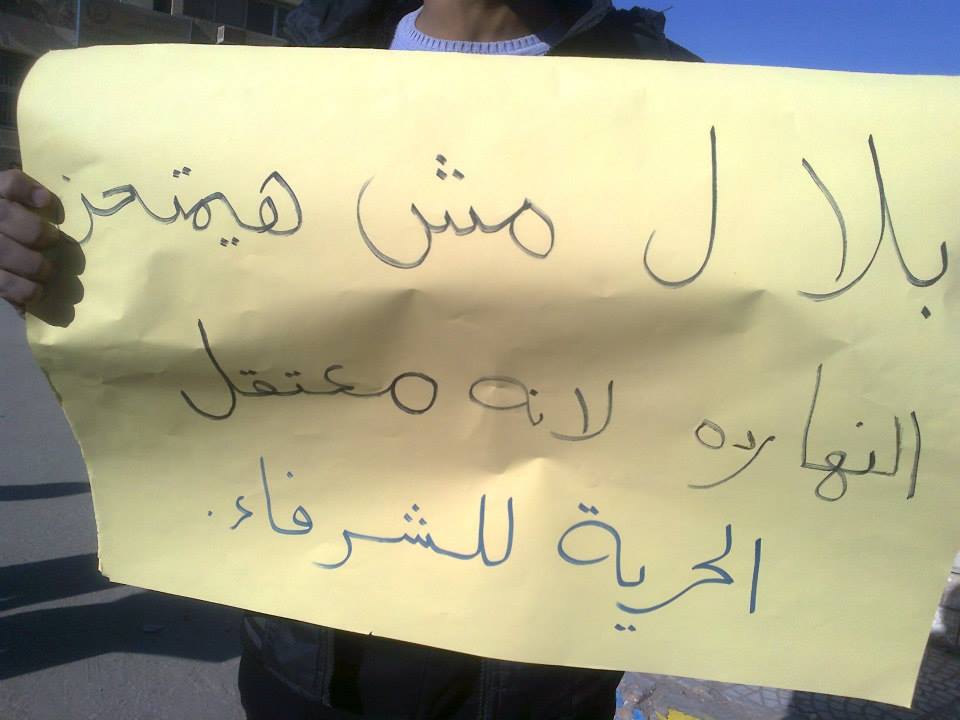 بلال مش هيمتحن
النهارده لانه معتقل
الحرية للشرفاء.